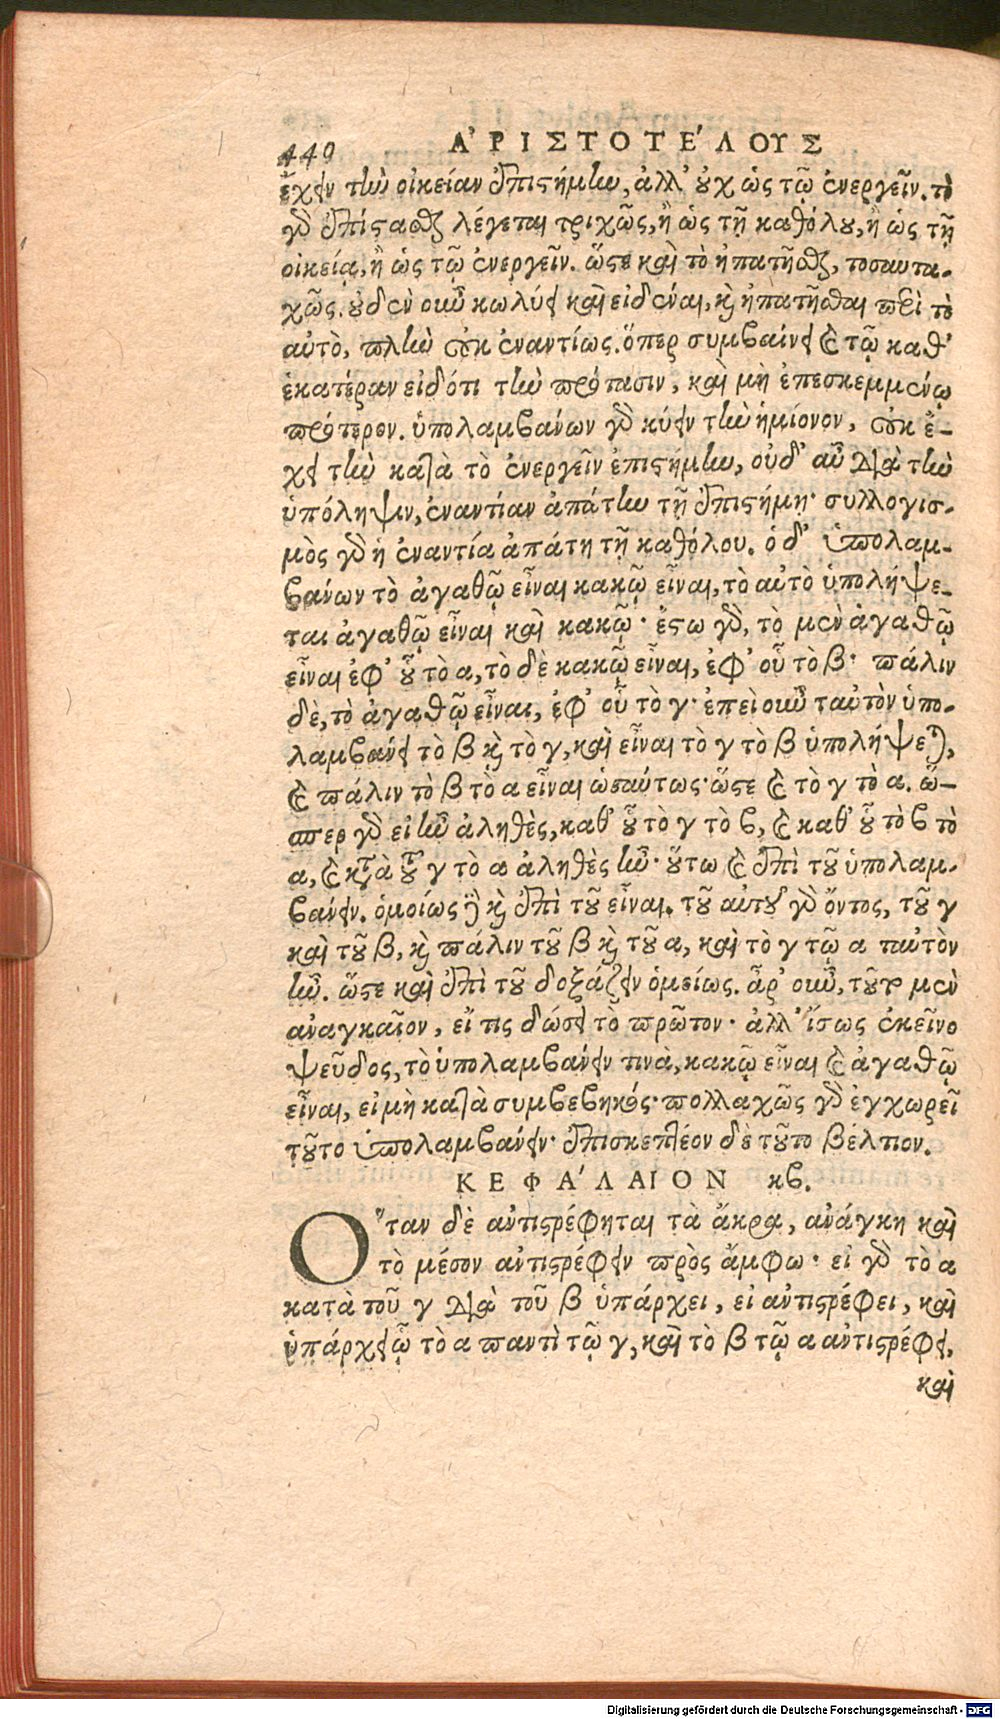 440 ἈΡΙΣΤΟΤΈΛΟΥΣ
ἔχειν τὴν οἰκείαν ἐπιστήμην, ἀλλ' οὐχ ὡς τῷ ἐνεργεῖν. τὸ
γὰρ ἐπίστασθαι λέγεται τριχῶς, ἢ ὡς τῇ καθόλου, ἢ ὡς τῇ
οἰκείᾳ, ἢ ὡς τῷ ἐνεργεῖν. ὥστε καὶ τὸ ἠπατῆσθαι, τοσαυτα-
χῶς. οὐδὲν οὖν κωλύει καὶ εἰδέναι, καὶ ἠπατῆσθαι περὶ τὸ
αὐτὸ, πλὴν οὐκ ἐναντίως. ὅπερ συμβαίνει καὶ τῷ καθ'
ἑκατέραν εἰδότι τὴν πρότασιν, καὶ μὴ ἐπεσκεμμένῳ
πρότερον. ὑπολαμβάνων γὰρ κύειν τὴν ἡμίονον, οὐκ ἔ-
χει τὴν κατὰ τὸ ἐνεργεῖν ἐπιστήμην, οὐδ' αὖ διὰ τὴν
ὑπόληψιν, ἐναντίαν ἀπάτην τῇ ἐπιστήμῃ· συλλογισ-
μὸς γὰρ ἡ ἐναντία ἀπάτη τῇ καθόλου. ὁ δ' ὑπολαμ-
βάνων τὸ ἀγαθῷ εἶναι κακῷ εἶναι, τὸ αὐτὸ ὑπολήψε-
ται ἀγαθῷ εἶναι καὶ κακῷ· ἔστω γὰρ, τὸ μὲν ἀγαθῷ
εἶναι ἐφ' οὗ τὸ α, τὸ δὲ κακῷ εἶναι, ἐφ' οὗ τὸ β· πάλιν
δὲ, τὸ ἀγαθῷ εἶναι, ἐφ' οὗ τὸ γ· ἐπεὶ οὖν ταὐτὸν ὑπο-
λαμβάνει τὸ β καὶ τὸ γ, καὶ εἶναι τὸ γ τὸ β ὑπολήψεται,
καὶ πάλιν τὸ β τὸ α εἶναι ὡσαύτως· ὥστε καὶ τὸ γ τὸ α. ὥ-
σπερ γὰρ εἰ ἦν ἀληθὲς, καθ' οὗ τὸ γ τὸ β, καὶ καθ' οὗ τὸ β τὸ
α, καὶ κατὰ τοῦ γ τὸ α ἀληθὲς ἦν· οὕτω καὶ ἐπὶ τοῦ ὑπολαμ-
βάνειν. ὁμοίως δὲ καὶ ἐπὶ τοῦ εἶναι. τοῦ αὐτοῦ γὰρ ὄντος, τοῦ γ
καὶ τοῦ β, καὶ πάλιν τοῦ β καὶ τοῦ α, καὶ τὸ γ τῷ α ταὐτὸν
ἦν. ὥστε καὶ ἐπὶ τοῦ δοξάζειν ὁμοίως. ἆρ' οὖν, τοῦτο μὲν
ἀναγκαῖον, εἴ τις δώσει τὸ πρῶτον· ἀλλ' ἴσως ἐκεῖνο
ψεῦδος, τὸ ὑπολαμβάνειν τινὰ, κακῷ εἶναι καὶ ἀγαθῷ
εἶναι, εἰ μὴ κατὰ συμβεβηκός· πολλαχῶς γὰρ ἐγχωρεῖ
τοῦτο ὑπολαμβάνειν· ἐπισκεπτέον δὲ τοῦτο βέλτιον.
ΚΕΦΆΛΑΙΟΝ κβ.
Ὅταν δὲ ἀντιστρέφηται τὰ ἄκρα, ἀνάγκη καὶ
τὸ μέσον ἀντιστρέφειν πρὸς ἄμφω· εἰ γὰρ τὸ α
κατὰ τοῦ γ διὰ τοῦ β ὑπάρχει, εἰ ἀντιστρέφει, καὶ
ὑπάρχει ᾧ τὸ α παντὶ τῷ γ, καὶ τὸ β τῷ α ἀντιστρέφει,
καὶ
Digitalisierung gefördert durch die Deutsche Forschungsgemeinschaft - DFG